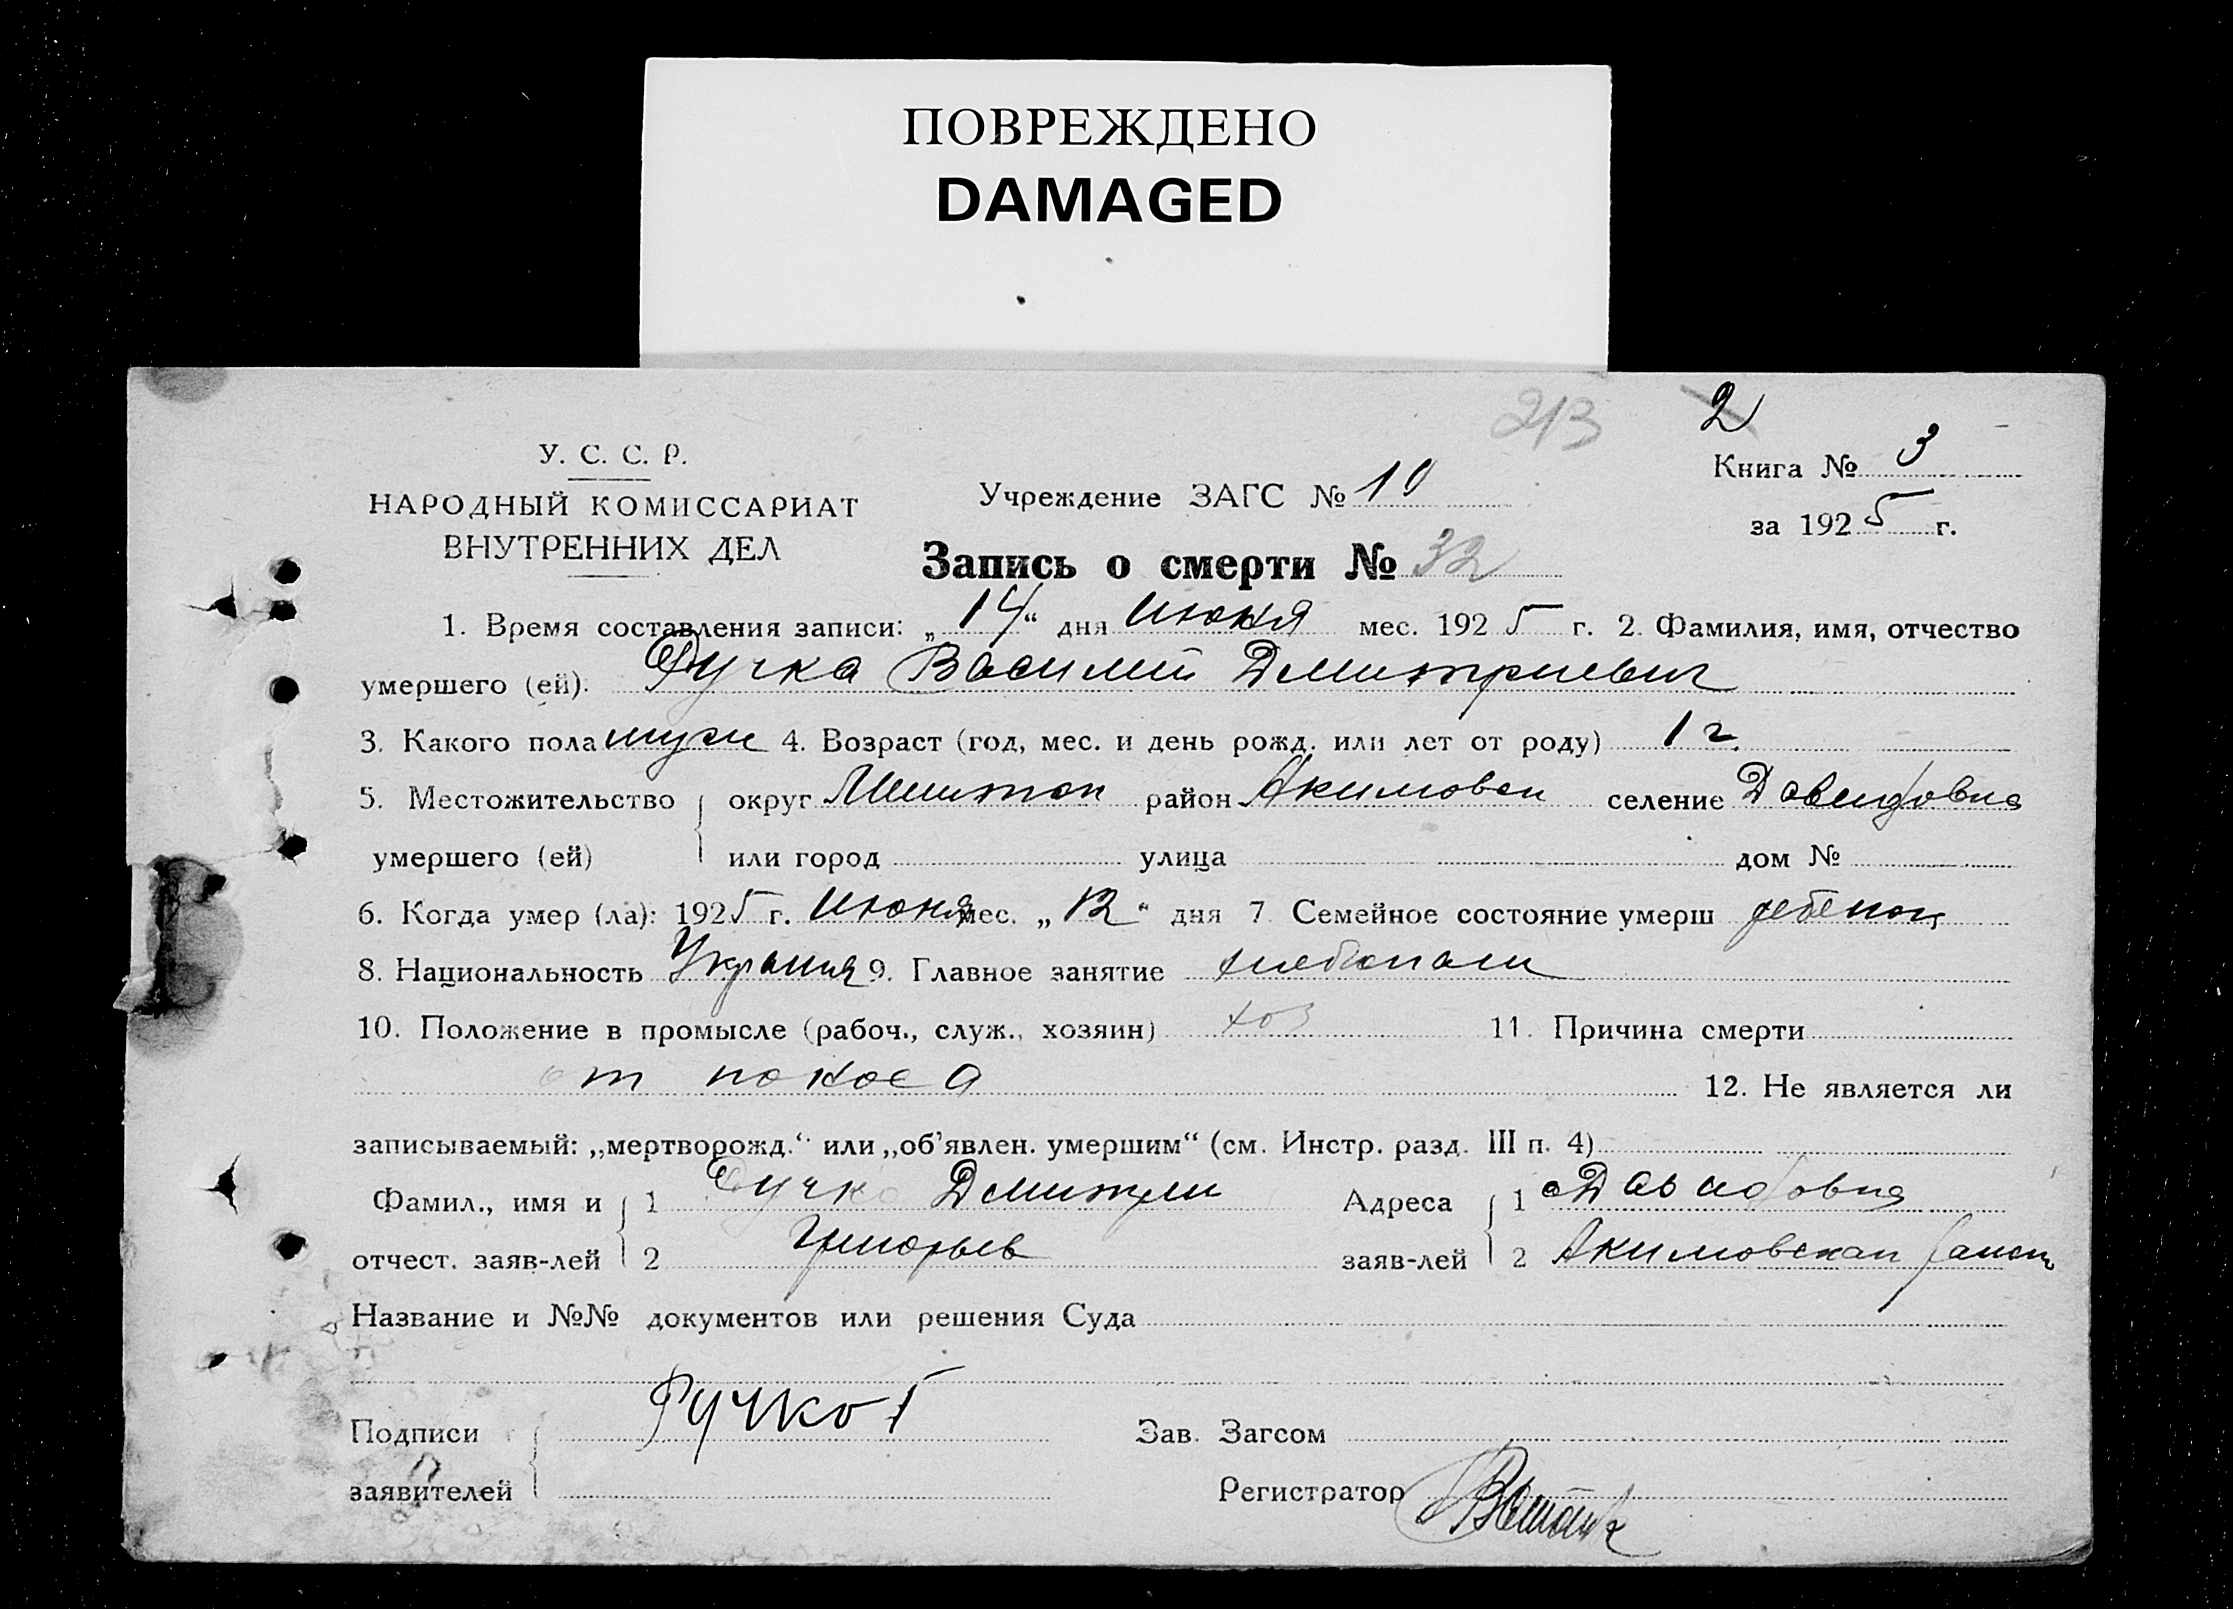 ПОВРЕЖДЕНО
DAMAGED
213
2
У. С. С. Р.
НАРОДНЫЙ КОМИССАРИАТ
ВНУТРЕННИХ ДЕЛ
Учреждение ЗАГС № 10
Книга № 3
за 1925 г.
Запись о смерти № 32
1. Время составления записи: „14“ дня Июня мес. 1925 г. 2. Фамилия, имя, отчество
умершего (ей): Ручка Василий Дмитриевич
3. Какого пола муж 4. Возраст (год, мес. и день рожд. или лет от роду) 1 г.
5. Местожительство округ Мелитоп район Акимовск селение Давидовка
умершего (ей) или город улица дом №
6. Когда умер (ла): 1925 г. Июня мес. „12“ дня 7. Семейное состояние умерш ребенок
8. Национальность 9. Главное занятие хлебопаш
10. Положение в промысле (рабоч., служ., хозяин) хоз 11. Причина смерти
от поноса 12. Не является ли
записываемый: „мертворожд.“ или „об'явлен. умершим“ (см. Инстр. разд. III п. 4)
Фамил., имя и 1 Ручка Дмитри Адреса 1 Давидовка
отчест. заяв-лей 2 Григорьев заяв-лей 2 Акимовская
Название и №№ документов или решения Суда
Подписи Ручко Зав. Загсом
заявителей Регистратор